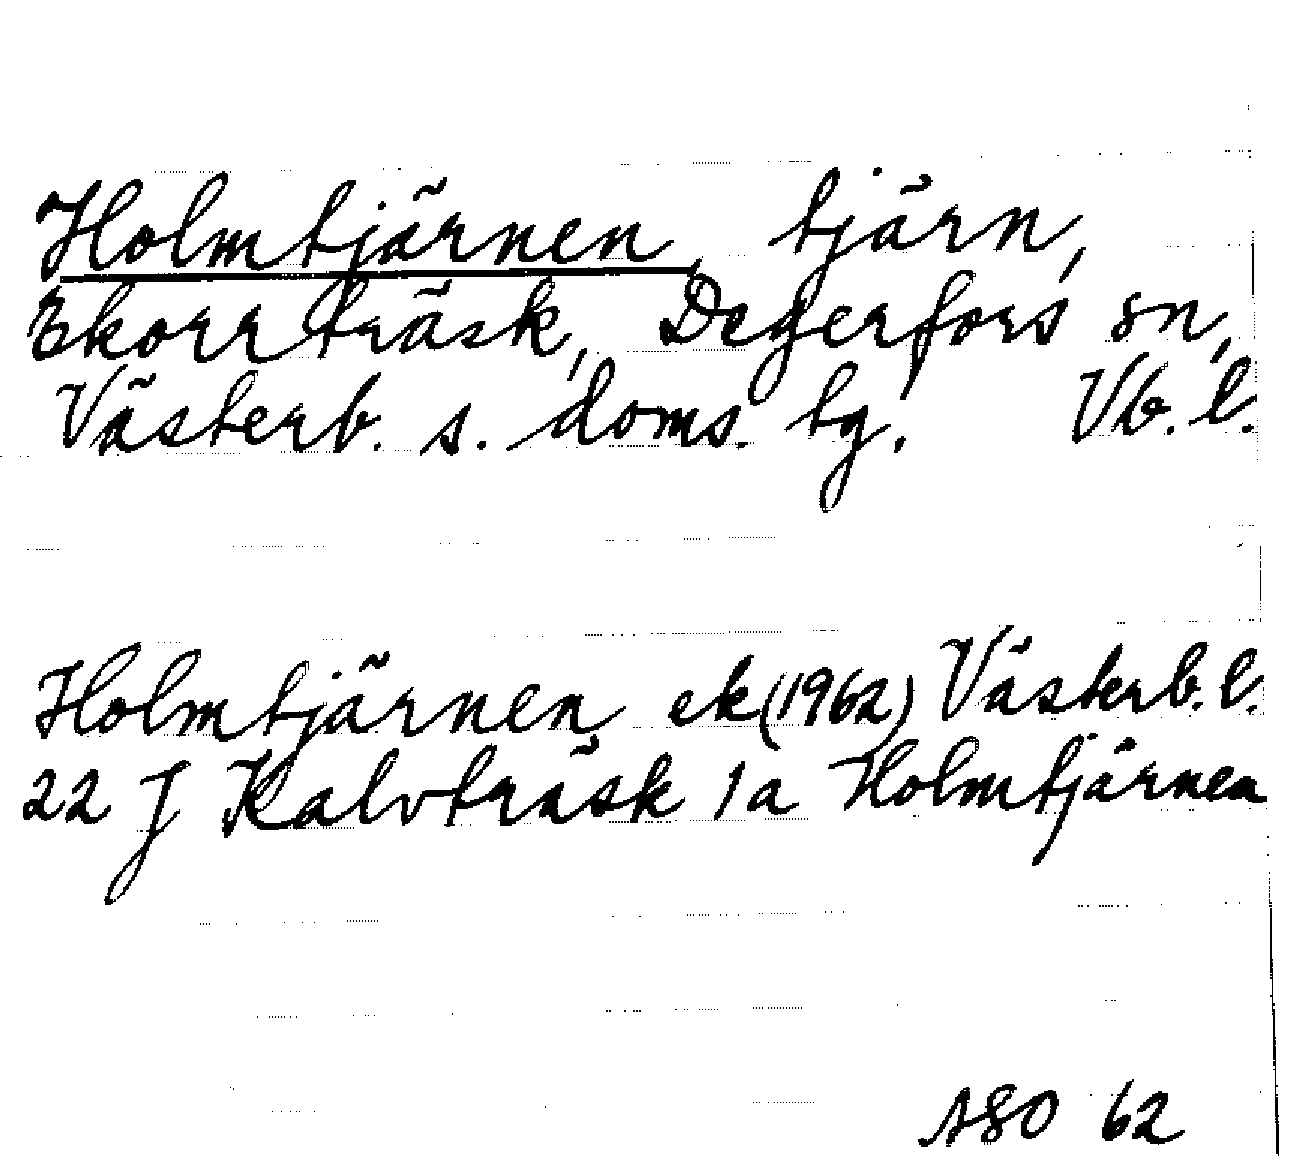 Holmtjärnen, tjärn,
Ekorrträsk, Degerfors sn,
Västerb. s. doms. tg. Vb. l.
Holmtjärnen ek (1962) Västerb. l.
22 J Kalvträsk 1a Holmtjärnen
ASO 62